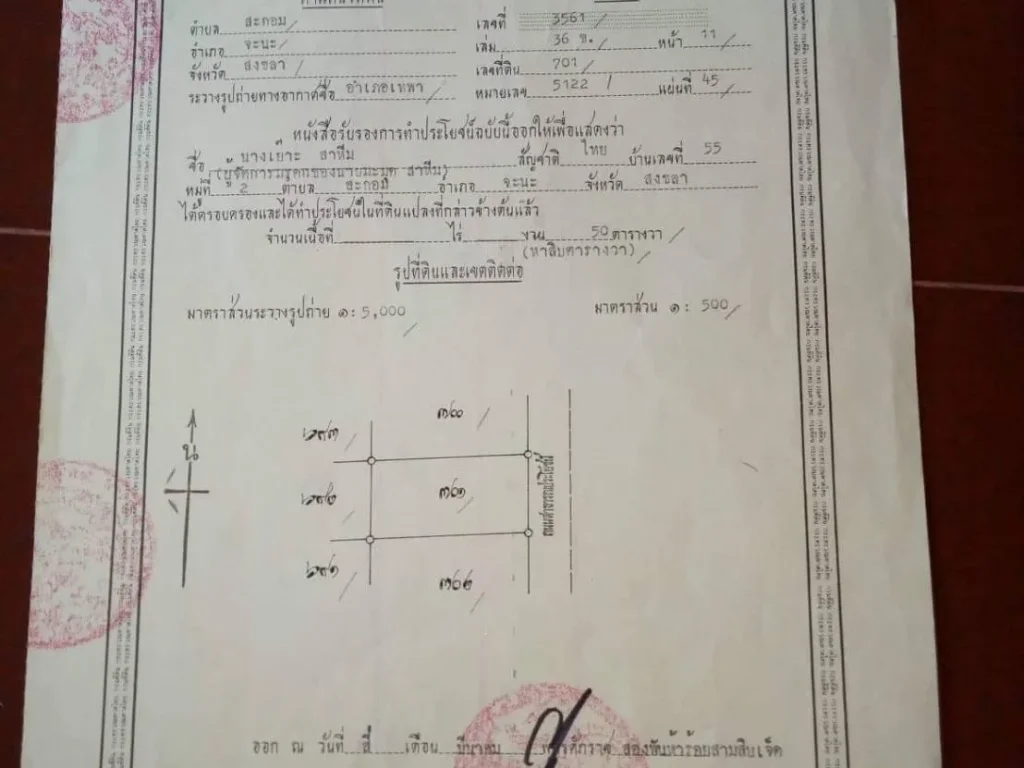 ตำแหน่งที่ดิน
ตำบล สะกอม เลขที่ 3561
อำเภอ จะนะ เล่ม 36 ข. หน้า 11
จังหวัด สงขลา เลขที่ดิน 701
ระวางรูปถ่ายทางอากาศชื่อ อำเภอเทพา หมายเลข 5122 แผ่นที่ 45
หนังสือรับรองการทำประโยชน์ฉบับนี้ออกให้เพื่อแสดงว่า
ชื่อ นางเย๊าะ สาหีม สัญชาติ ไทย บ้านเลขที่ 55
(ผู้จัดการมรดกของนายมะมุด สาหีม)
หมู่ที่ 2 ตำบล สะกอม อำเภอ จะนะ จังหวัด สงขลา
ได้ครอบครองและได้ทำประโยชน์ในที่ดินแปลงที่กล่าวข้างต้นแล้ว
จำนวนเนื้อที่ ไร่ งาน 50 ตารางวา
(หาสิบตารางวา)
รูปที่ดินและเขตติดต่อ
มาตราส่วนระวางรูปถ่าย ๑: 5,000 มาตราส่วน ๑: 500
๗๐๐
๖๙๓
น
๖๙๒ ๗๐๑
ถนนสาธารณประโยชน์
๖๙๑ ๗๐๒
ออก ณ วันที่ สี่ เดือน มีนาคม พุทธศักราช สองพันห้าร้อยสามสิบเจ็ด